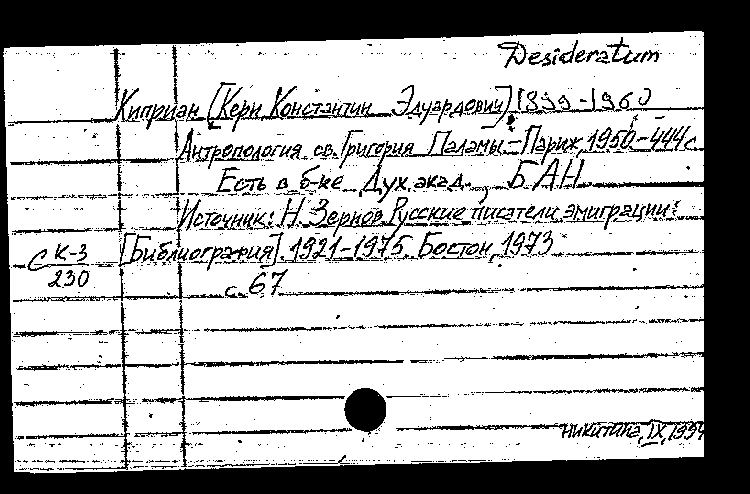 Desideratum
Киприан [Керн Константин Эдуардович] 1899-1960
Антропология св. Григория Паламы. – Париж, 1950 – 444 с
Есть в б-ке Дух. акад., БАН
Источник: Н. Зернов Русские писатели эмиграции:
С К-3 [Библиография]. 1921-1975. Бостон, 1973
230
с. 67
Никитина, IX, 1994